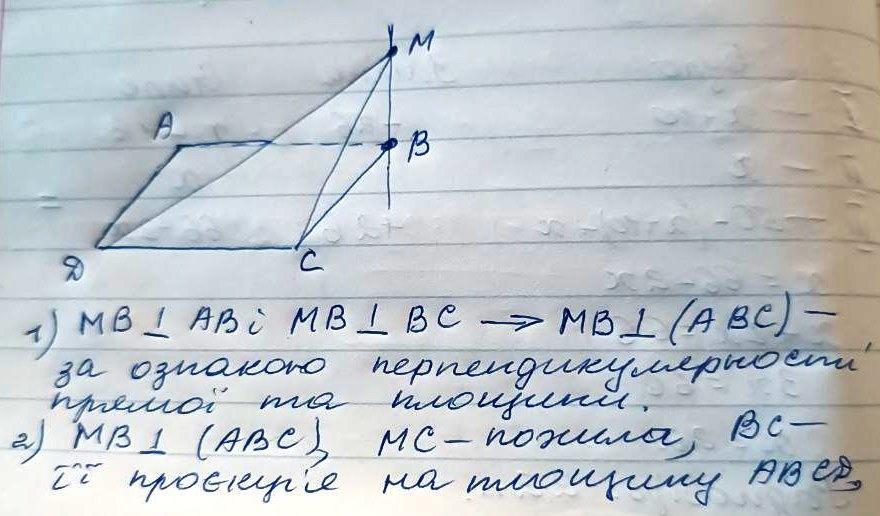 M
A
B
D
C
1) MB ⊥ AB і MB ⊥ BC → MB ⊥ (ABC) –
за ознакою перпендикулярності
прямої та площини.
2) MB ⊥ (ABC), MC – похила, BC –
її проєкція на площину ABCD,